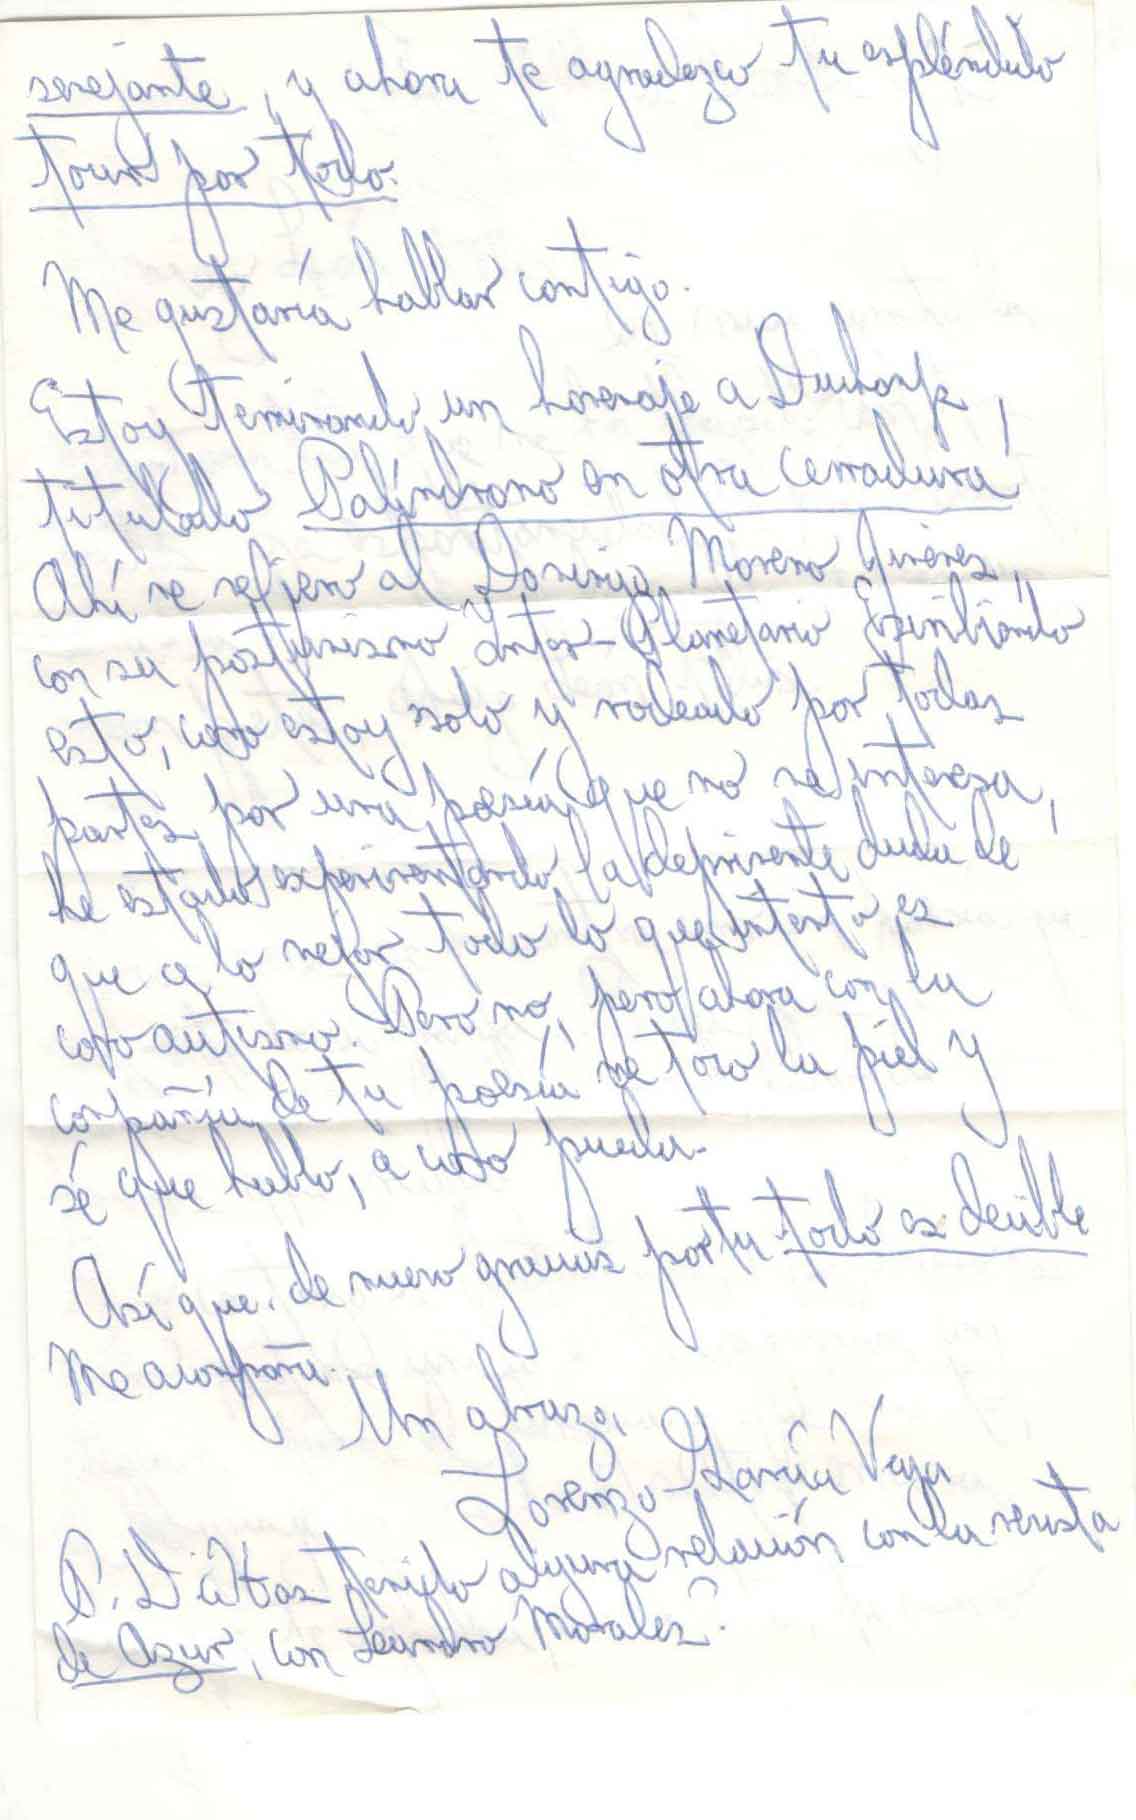 semejante, y ahora te agradezco tu espléndido
tour por todo.
Me gustaría hablar contigo.
Estoy terminando un homenaje a Duchamp,
titulado Palíndromo en otra cerradura
Ahí me refiero al Domingo Moreno Jimenes,
con su postumismo Inter-Planetario Escribiendo
esto, como estoy solo y rodeado por todas
partes por una poesía que no me interesa,
he estado experimentando la deprimente duda de
que a lo mejor todo lo que intento es
como autismo. Pero no, pero ahora con la
compañía de tu poesía me toco la piel y
sé que hablo, a como pueda.
Así que de nuevo gracias por tu todo es decible
Me acompaña.
Un abrazo,
Lorenzo García Vega
P.D. ¿Has tenido alguna relación con la revista
de Azur, con Leandro Morales?